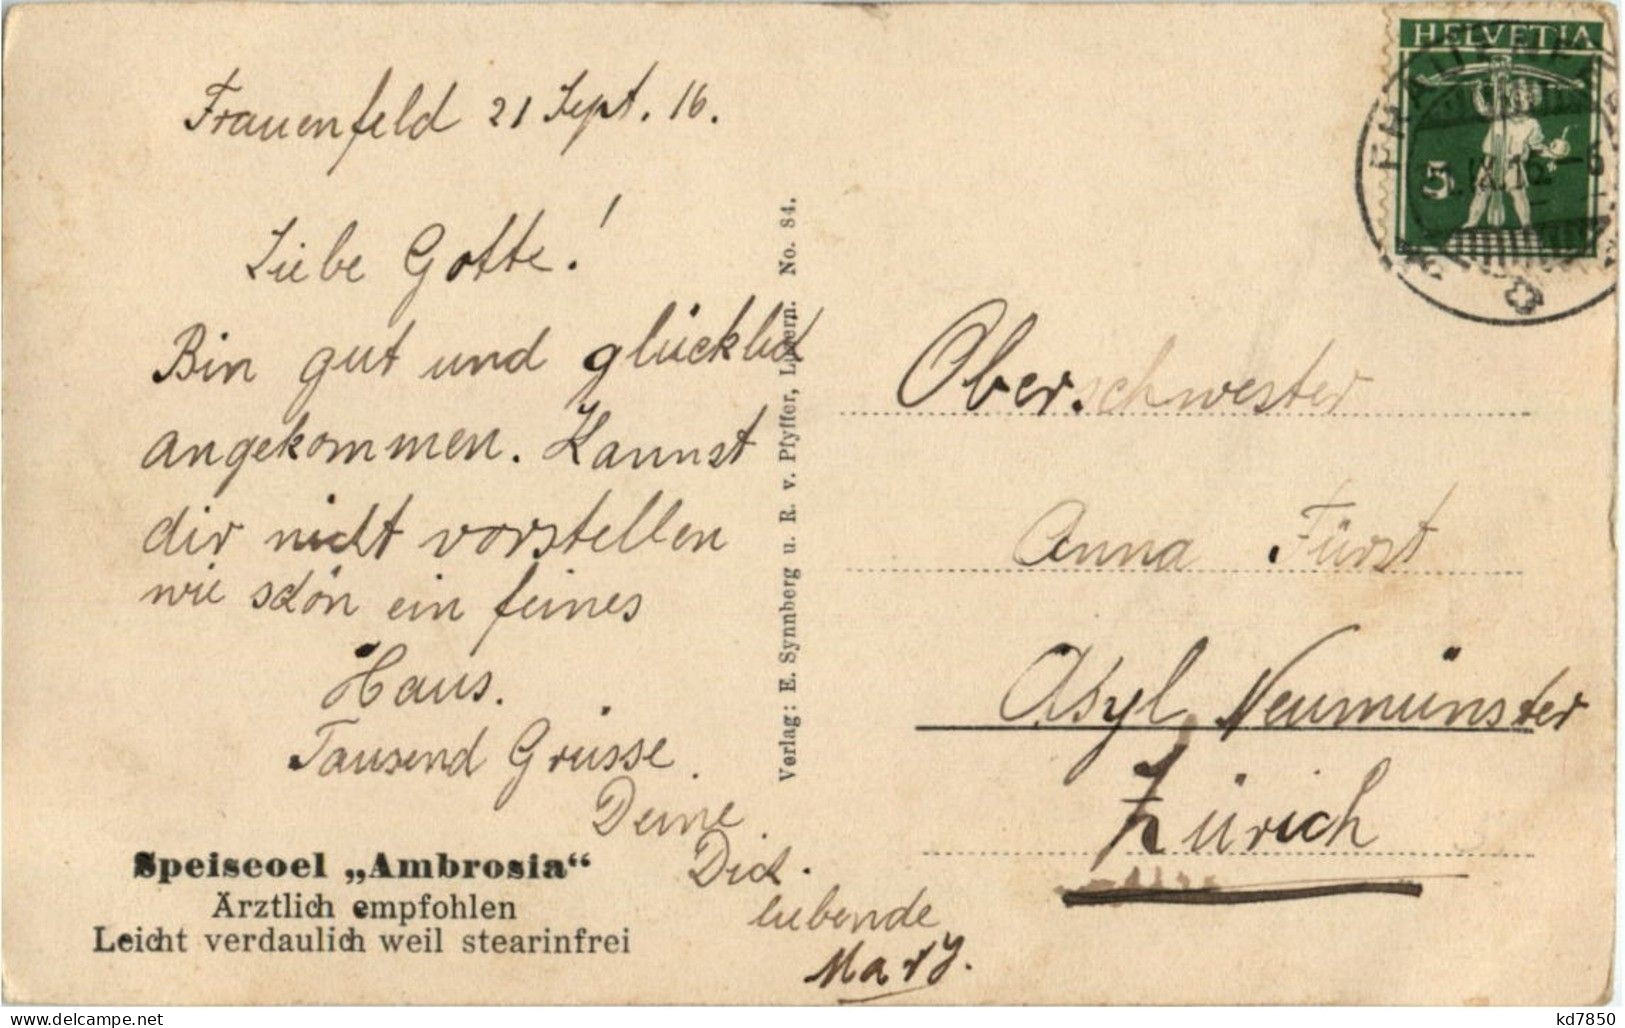 Frauenfeld 21 Sept. 16.
Liebe Gotte!
Bin gut und glücklich
angekommen. Kannst
dir nicht vorstellen
wie schön ein feines
Haus.
Tausend Grüsse.
Deine
Dich.
liebende
Mary.
Speiseoel „Ambrosia“
Ärztlich empfohlen
Leicht verdaulich weil stearinfrei
Verlag: E. Synnberg u. R. v. Pfyffer, Luzern. No. 84.
HELVETIA
5
Oberschwester
Anna Fürst
Asyl Neumünster
Zürich
kd7850